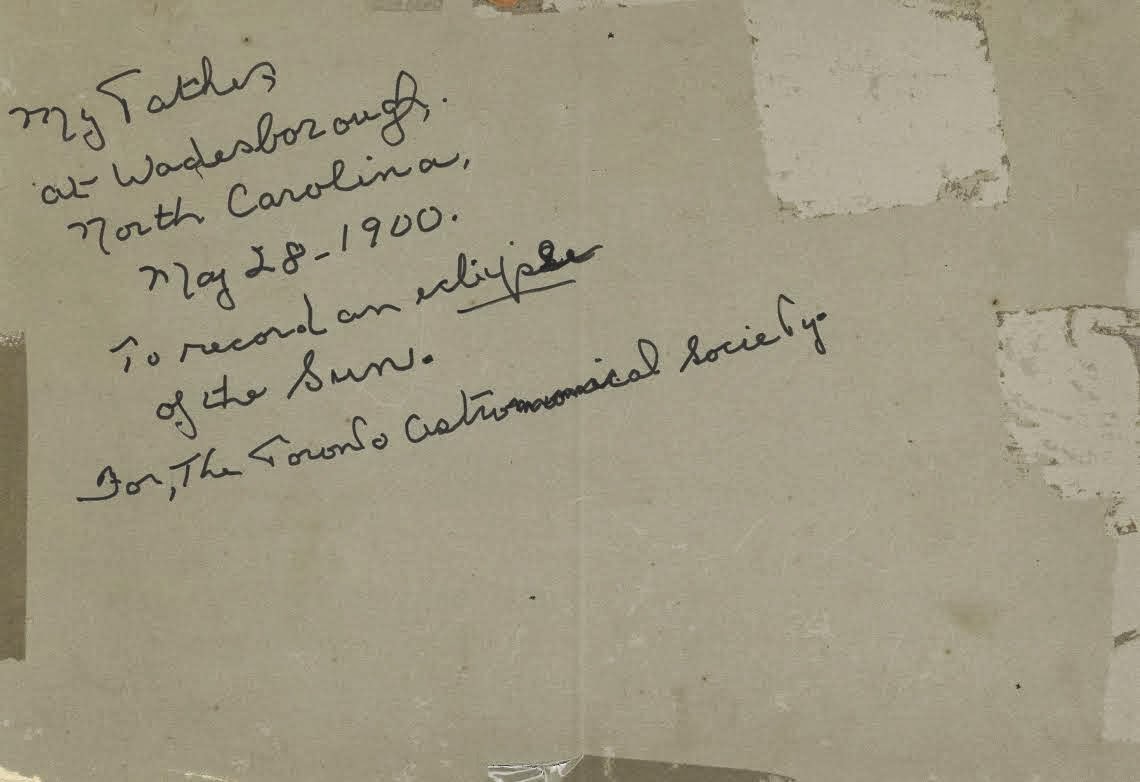 My Father
at Wadesborough,
North Carolina,
May 28-1900.
To record an eclipse
of the Sun.
For, The Toronto Astronomical Society.